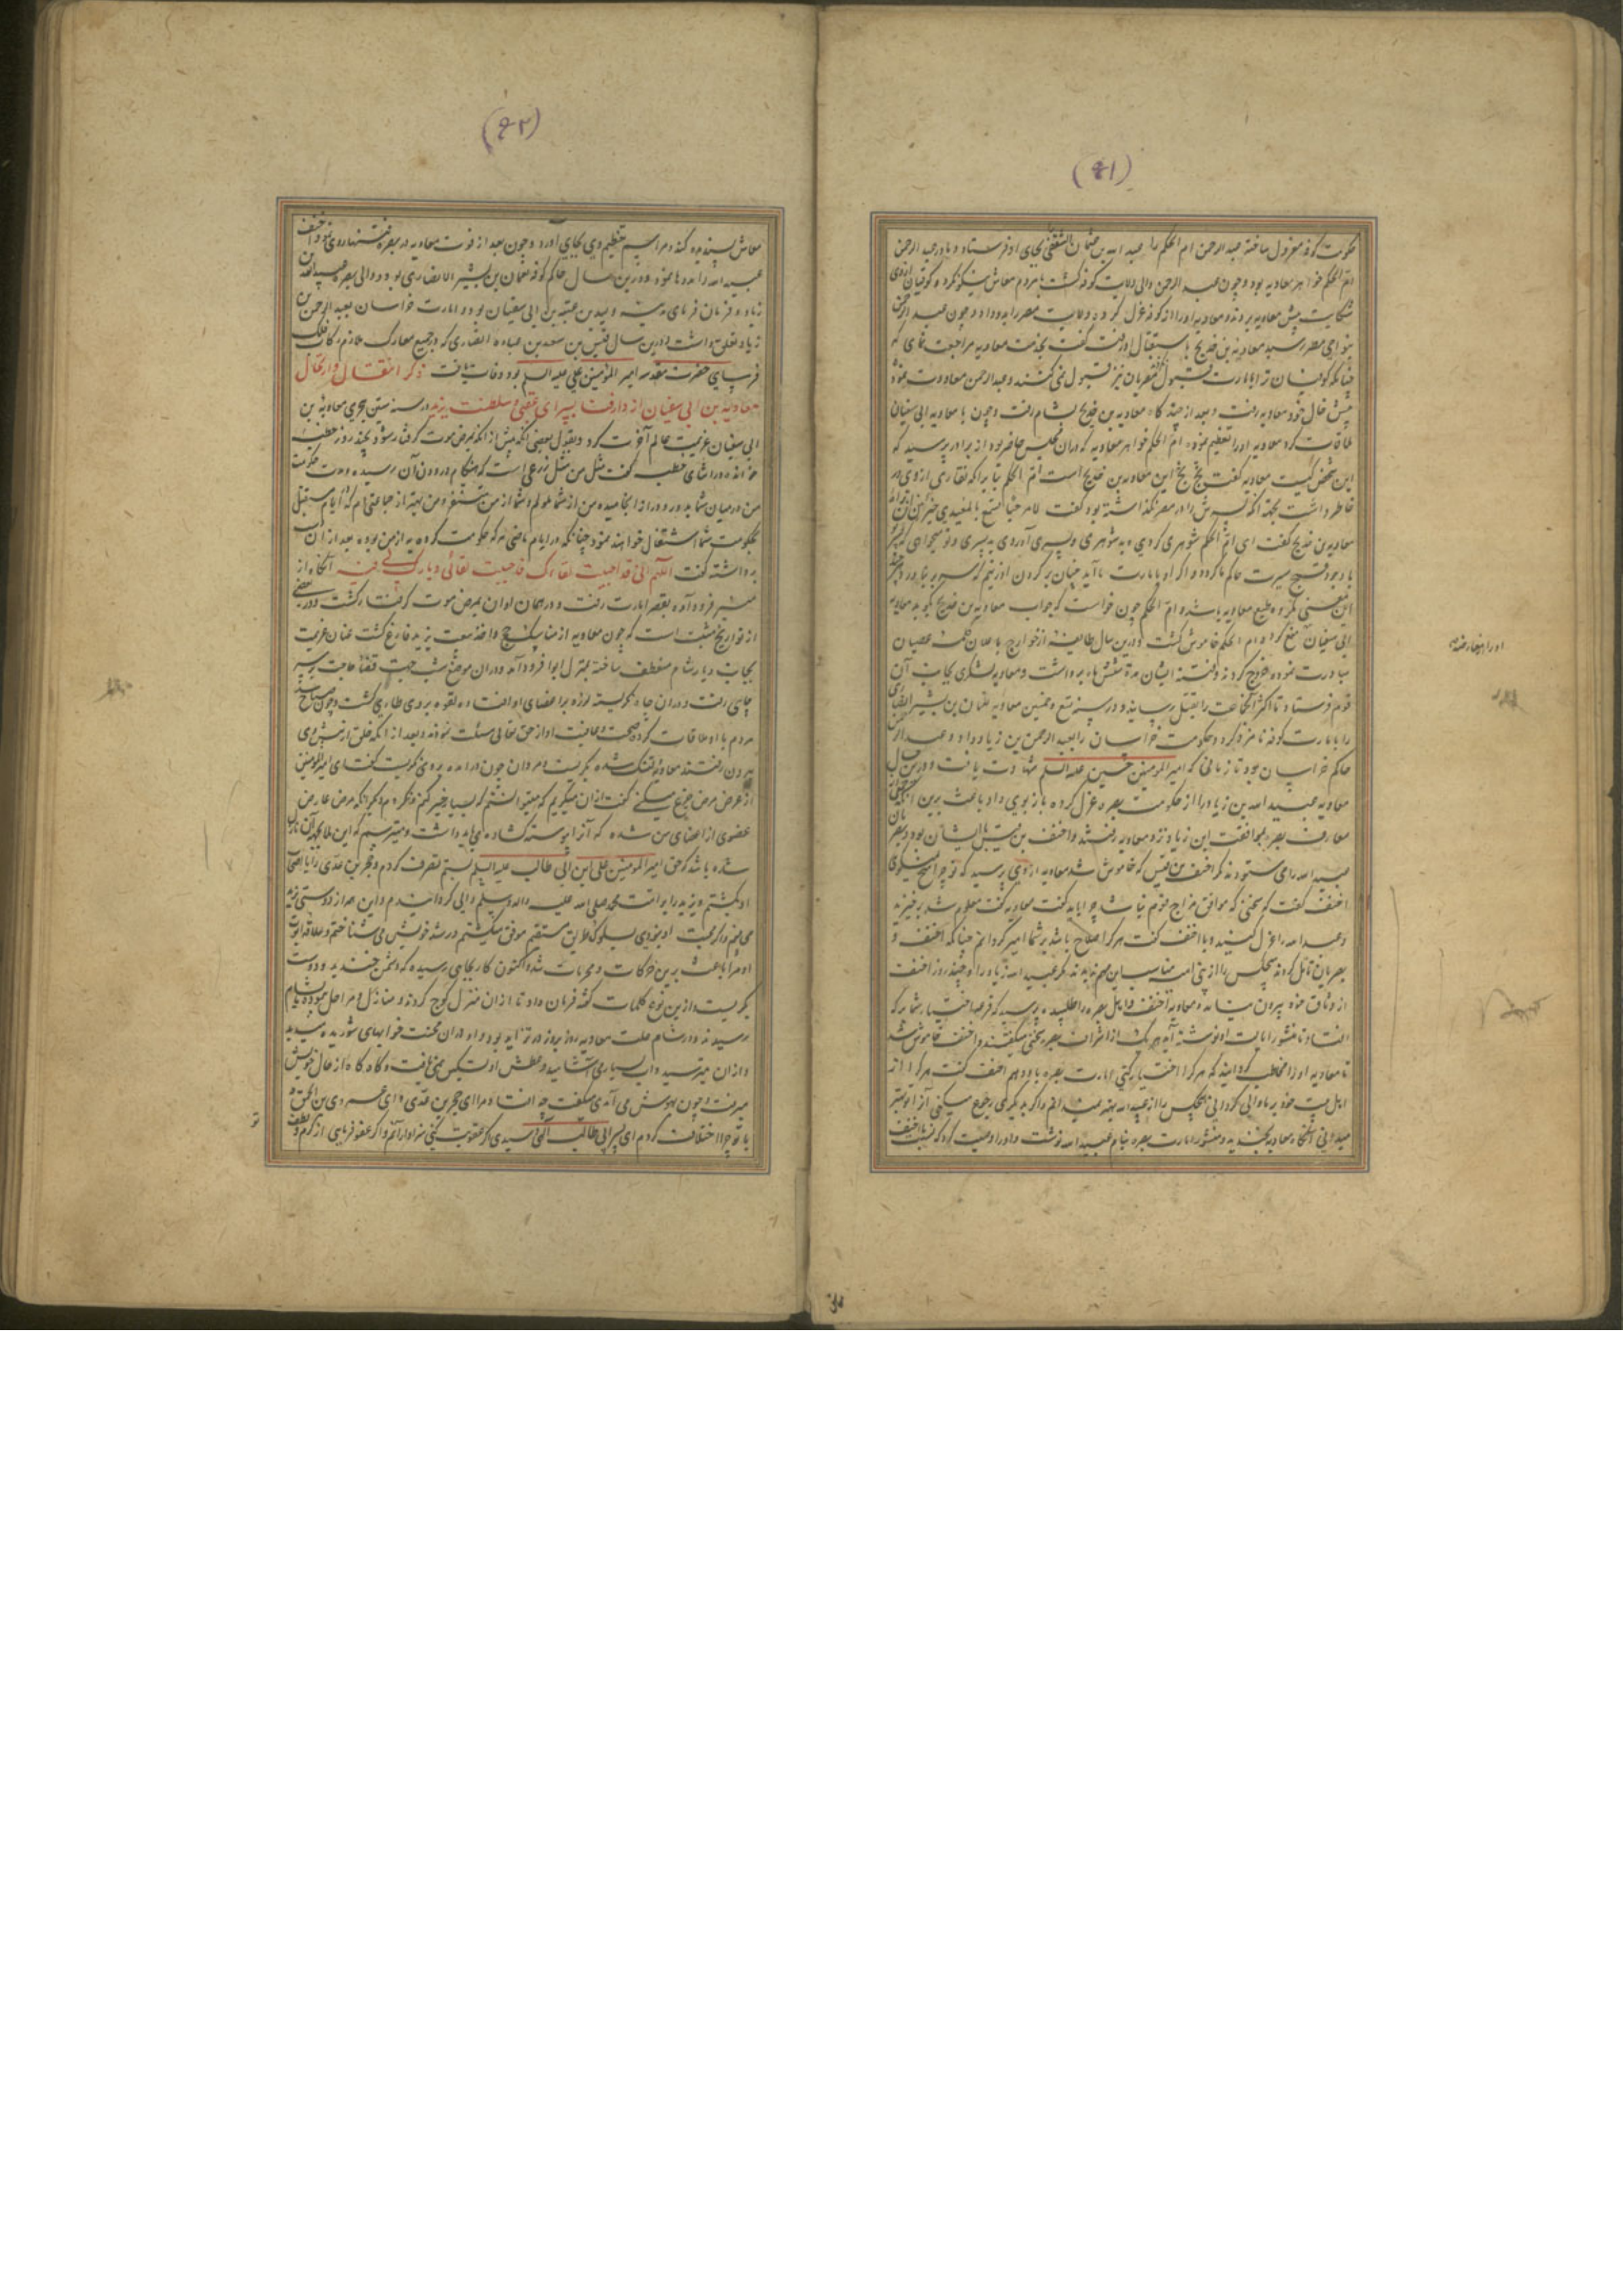 (۶۱)
حکومت کوفه معزول ساخته عبد الرحمن ام الحکم را عبد الله بن عثمان الثقفی بجای او فرستاد و مادر عبد الرحمن
ام الحکم خواهر معاویه بود و چون عبد الرحمن والی ولایت کوفه گشت با مردم معاش نیکو نکرد و کوفیان ازوی
شکایت پیش معاویه بردند و معاویه او را از کوفه عزل کرده ولایت مصر را بدو داد و چون عبد الرحمن
بنواحی مصر رسید معاویه بن خدیج باستقبال او رفت گفت بخدمت معاویه مراجعت نمای که
چنانکه کوفیان ترا بامارت قبول مصریان نیز قبول نمی کنند و عبد الرحمن معاودت نموده
پیش خال خود معاویه رفت و بعد از چند گاه معاویه بن خدیج بشام رفت و چون با معاویه ابی سفیان
ملاقات کرد معاویه او را تعظیم نمود ام الحکم خواهر معاویه که در ان مجلس حاضر بود از برادر پرسید که
این شخص کیست معاویه گفت بخ بخ این معاویه بن خدیج است ام الحکم بنا بر انکه نقاری ازوی در
خاطر داشت بجهة انکه پسرش را در مصر نگذاشته بود گفت لا مرحبا تسمع بالمعیدی خیر من ان تراه
معاویه بن خدیج گفت ای ام الحکم شوهری کردی و به شوهری و پسری آوردی به پسری و تو میخواهی که
با وجود قبح سیرت حاکم ما کردد و اگر او بامارت ما آید چنان بر گردن او زنیم که سر بر نیاورد
این معنی مکروه طبع معاویه باشد و ام الحکم چون خواست که جواب معاویه بن خدیج بگوید معاویه
ابی سفیان منع کرد و ام الحکم خاموش گشت و درین سال طایفه از خوارج باعلان کلمه عصیان
مبادرت نموده خروج کردند و فتنه ایشان مدة شش ماه برداشت و معاویه لشکری بجانب آن
قوم فرستاد تا اکثر انجماعت را بقتل رسانید و در سنه تسع و خمسین معاویه نعمان بن بشیر انصاری
را بامارت کوفه نامزد کرد و حکومت خراسان را بعبد الرحمن بن زیاد داد و عبد الرحمن
حاکم خراسان بود تا زمانی که امیر المومنین حسین علیه السلم شهادت یافت و درین سال
معاویه عبید الله بن زیاد را از حکومت بصره عزل کرده باز بوی داد باعث برین انکه
معارف بصره بموافقت ابن زیاد نزد معاویه رفتند و احنف بن قیس با ایشان بود و بصریان
عبید الله را می ستودند مگر احنف بن قیس که خاموش شد معاویه ازوی پرسید که تو چرا سخن نمیگوی
احنف گفت که سخنی که موافق مزاج قوم نباشد چرا باید گفت معاویه گفت معلوم شد برخیزید
و عبید الله را عزل کنید و با احنف گفت هر کرا صلاح باشد بر شما امیر گردانم چنانکه احنف و
بصریان تامل کردند هیچکس را از بنی امیه مناسب این مهم ندیدند مگر عبید الله زیاد را و چند روز احنف
از وثاق خود بیرون نیامد و معاویه احنف و اهل بصره را طلبیده پرسید که قرعه اختیار شما بر که
افتاد تا منشور ایالت او نوشته آید هر یک از اشراف بصره سخنی میگفتند و احنف خاموش شد
تا معاویه او را مخاطب گردانید که هر کرا اختیار کنی امارت بصره باو دهم احنف گفت هر کرا از
اهل بیت خود بر ما والی گردانی هیچکس را از عبید الله بهتر نمیدانم و اگر بدیگری رجوع میکنی آنرا تو بهتر
میدانی آنگاه معاویه بخندید و منشور امارت بصره بنام عبید الله نوشت و او را وصیت کرد که نسبت با احنف
(۶۲)
معاش پسندیده کند و مراسم تعظیم وی بجای آورد و چون بعد از فوت معاویه در بصره فتنها روی نمود احنف
عبید الله را مددها نمود و درین سال حاکم کوفه نعمان بن بشیر الانصاری بود و والی بصره عبید الله بن
زیاد و فرمان فرمای مدینه ولید بن عتبة بن ابی سفیان بود و امارت خراسان بعبد الرحمن بن
زیاد تعلق داشت و درین سال قیس بن سعد بن عباده انصاری که در جمیع معارک ملازم رکاب فلک
فرسای حضرت مقدسه امیر المؤمنین علی علیه السلم بود وفات یافت ذکر انتقال و ارتحال
معاویه بن ابی سفیان از دار فنا بسرای عقبی و سلطنت یزید در سنه ستین هجری معاویه بن
ابی سفیان عزیمت عالم آخرت کرد و بقول بعضی انکه پیش از انکه بمرض موت گرفتار شود بچند روز خطبه
خوانده در اثنای خطبه گفت مثل من مثل زرعی است که هنگام درودن آن رسیده و مدت حکومت
من در میان شما بدور و دراز انجامیده من از شما ملولم و شما از من متنفر و من بهتر از جماعتی ام که در ایام مستقبل
بحکومت شما اشتغال خواهند نمود چنانکه در ایام ماضی هر که حکومت کرده به از من بوده بعد از ان
برداشته گفت اللهم انی قد احببت لقاءک فاحبب لقائی و بارک لی فیه آنگاه از
منبر فرود آمده بقصر امارت رفت و در همان اوان بمرض موت گرفتار گشت و در بعضی
از تواریخ مثبت است که چون معاویه از مناسک حج و اخذ بیعت یزید فارغ گشت عنان عزیمت
بجانب دیار شام منعطف ساخته بمنزل ابوا فرود آمد و در ان موضع شب جهت قضاء حاجت بر سر
چاهی رفت و در ان چاه نگریسته لرزه بر اعضای او افتاده لقوه بر وی طاری گشت و چون صباح شد
مردم با او ملاقات کرده صحت و عافیت او از حق تعالی مسئلت نمودند و بعد از انکه خلق از پیش وی
بیرون رفتند معاویه تنگ شده بگریست و مروان چون در آمده بروی نگریست گفت ای امیر المومنین
از عرض مرض جزع میکنی گفت از ان میگریم که میتوانستم که بسیار خیر کنم و نکردم و دیگر انکه مرض عارض
عضوی از اعضای من شده که آنرا پیوسته گشاده می باید داشت و میترسم که این بلا بجهة آن نازل
شده باشد که حق امیر المومنین علی ابن ابی طالب علیه السلم بستم تصرف کردم و حجر بن عدی را با اصحاب
او بکشتم و یزید را بر امت محمد صلی الله علیه و اله و سلم والی گردانیدم و این همه از دوستی یزید
می بینم و اگر محبت او نبودی بسلوک طریق مستقیم موفق میگشتم و رشد خویش می شناختم و علاقه ابوت
او مرا باعث برین حرکات و محرمات شد و اکنون کار بجایی رسیده که دشمن خندید و دوست
بگریست و ازین نوع کلمات گفته فرمان داد تا از ان منزل کوچ کردند و منازل و مراحل پیموده بشام
رسیدند و در شام علت معاویه روز بروز در تزاید بود و او در ان محنت خوابهای شوریده میدید
و از ان میترسید و آب بسیار می آشامید و عطش او تسکین نمی یافت و گاه گاه از حال خویش
میرفت و چون بهوش می آمدی میگفت چه افتاد مرا ای حجر بن عدی و ای عمرو بن الحمق و
با تو چرا اختلاف کردم ای پسر ابی طالب الهی و سیدی اگر عقوبت کنی سزاوار آنم و اگر عفو فرمایی از کرم و لطف
تو